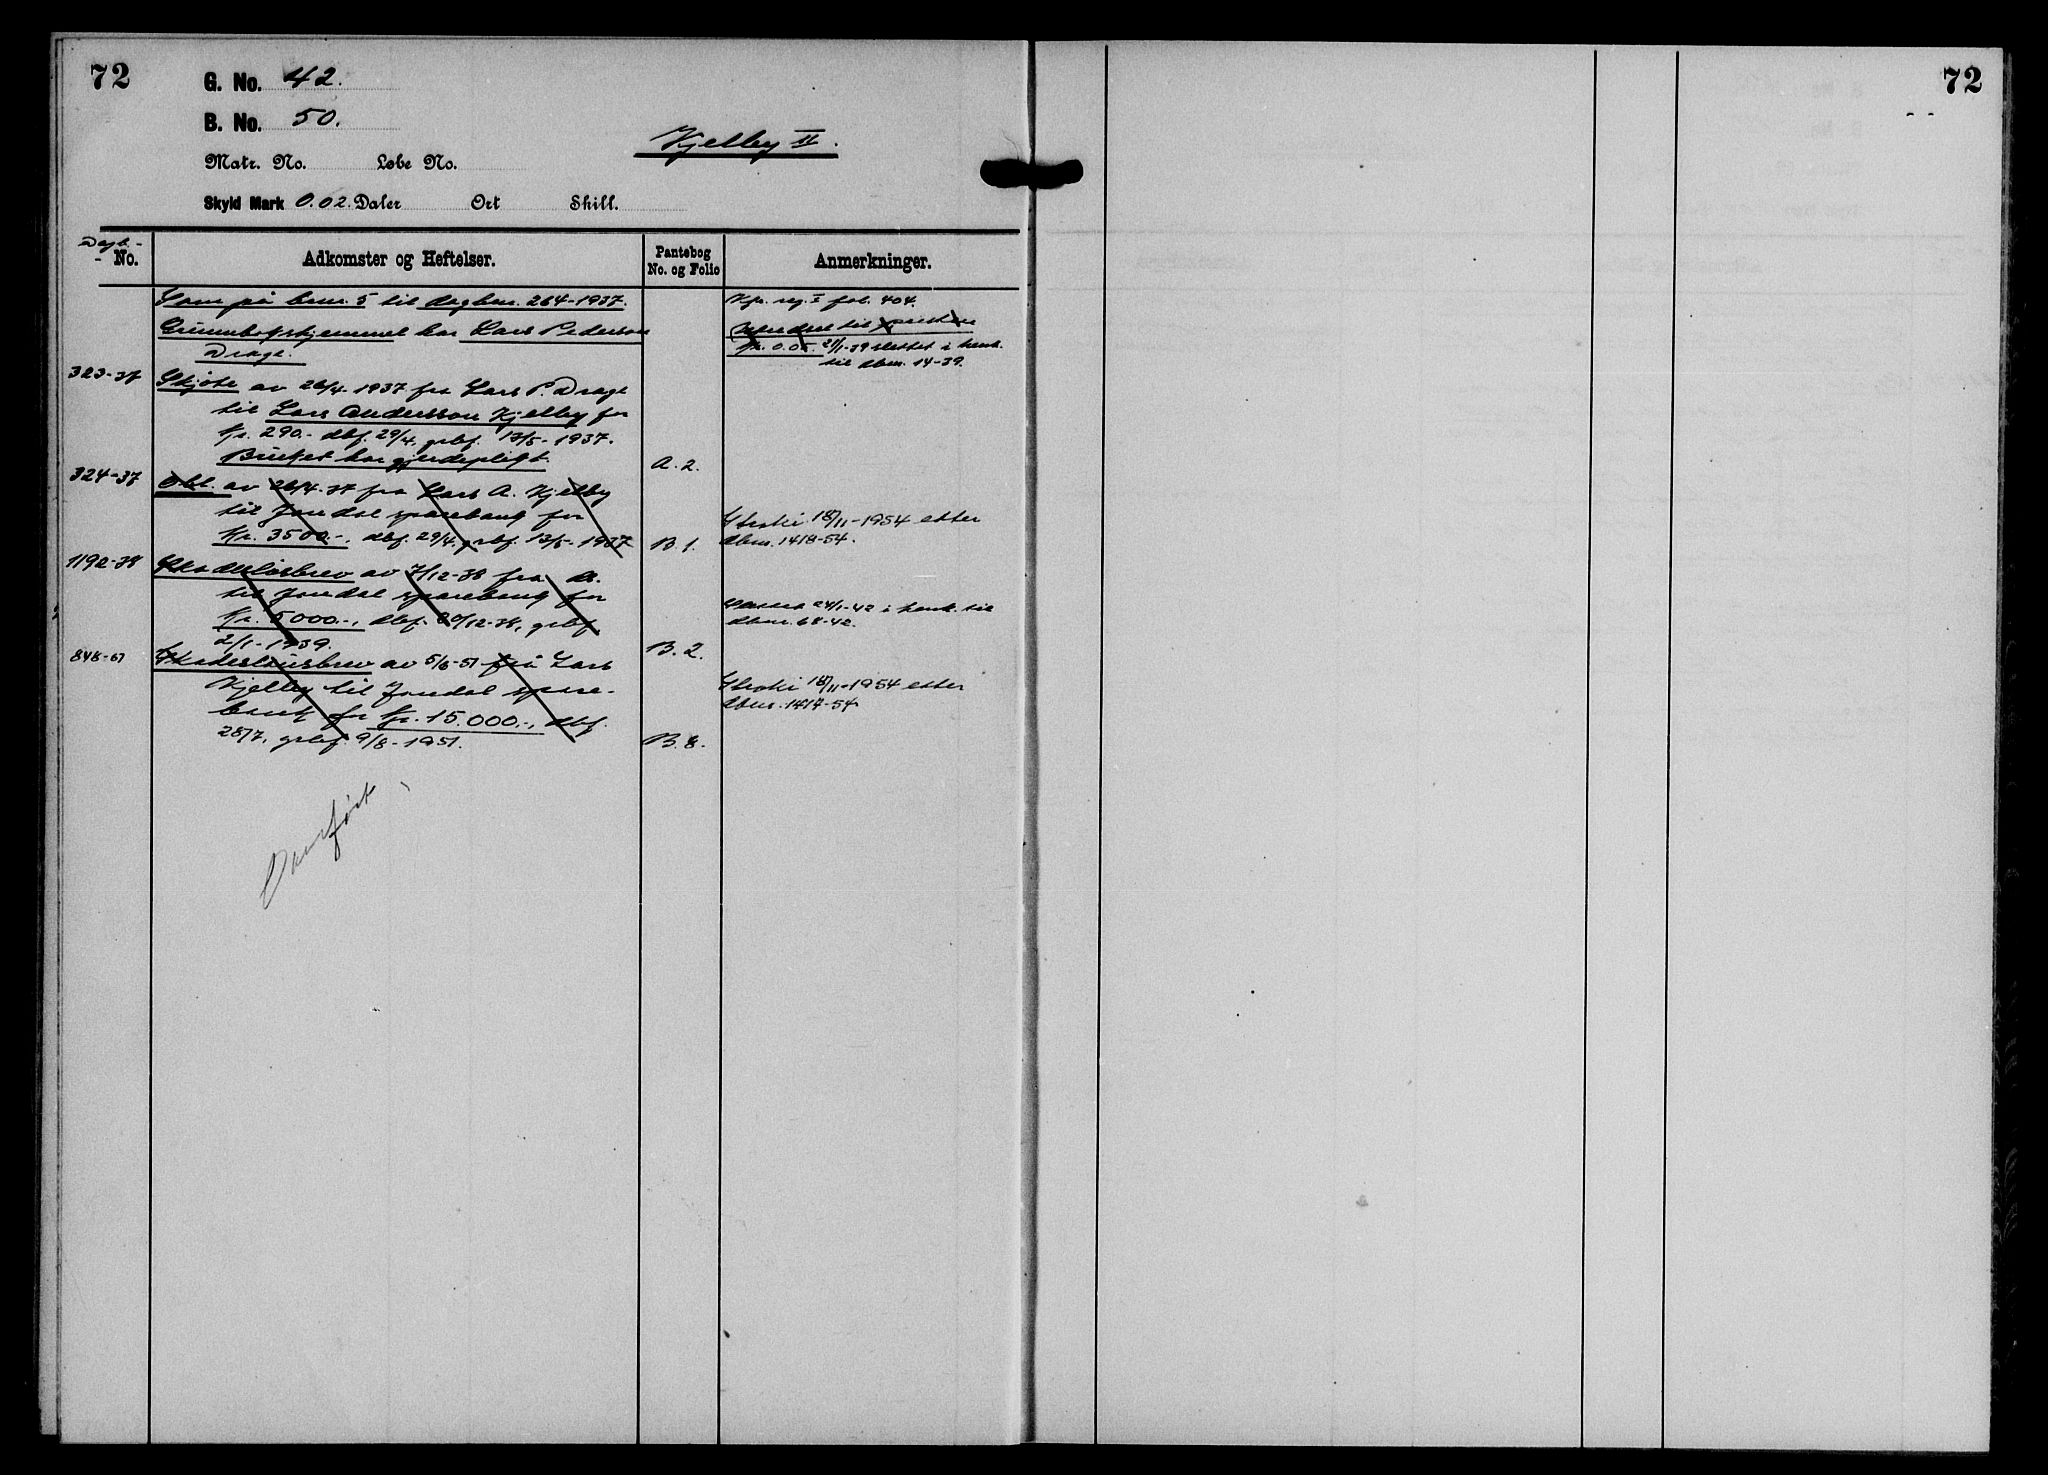 72
G. No. 42.
B. No. 50.
Kjelby II.
Matr. No. Løbe No.
Skyld Mark 0.02. Daler Ort Skill.
Dagb.-
No. Adkomster og Heftelser. Pantebog No. og Folio Anmerkninger.
Som på bnr. 5 til dagbnr. 264-1937.
Kfr. reg. I fol. 404.
Grunnbokshjemmel har Lars Pederson
Drage.
kr. 0.02. 21/1-39 slettet i henh.
til dbnr. 14-39.
323-37 Skjøte av 26/4-1937 fra Lars P. Drage
til Lars Andersson Kjelby for
kr. 290.- dbf. 29/4, grbf. 13/5-1937.
Bruket har gjerdeplikt. A. 2.
324-37 Obl. av 26/4-37 fra Lars A. Kjelby
til Jondal sparebank for
kr. 3500.-, dbf. 29/4, grbf. 13/5-1937 B. 1.
Strøki 18/11-1954 etter
dbnr. 1418-54.
1192-38 Skadesløsbrev av 7/12-38 fra ds.
til Jondal sparebank for
kr. 5000.-, dbf. 20/12-38, grbf.
2/1-1939. B. 2.
24/1-42 i henh. til
dbnr. 68-42.
848-51 Skadeslausbrev av 5/6-51 frå Lars
Kjelby til Jondal spare-
bank for kr. 15.000.-, dbf.
28/7, grbf. 9/8-1951. B. 8.
Strøki 18/11-1954 etter
dbnr. 1417-54
Overført
72